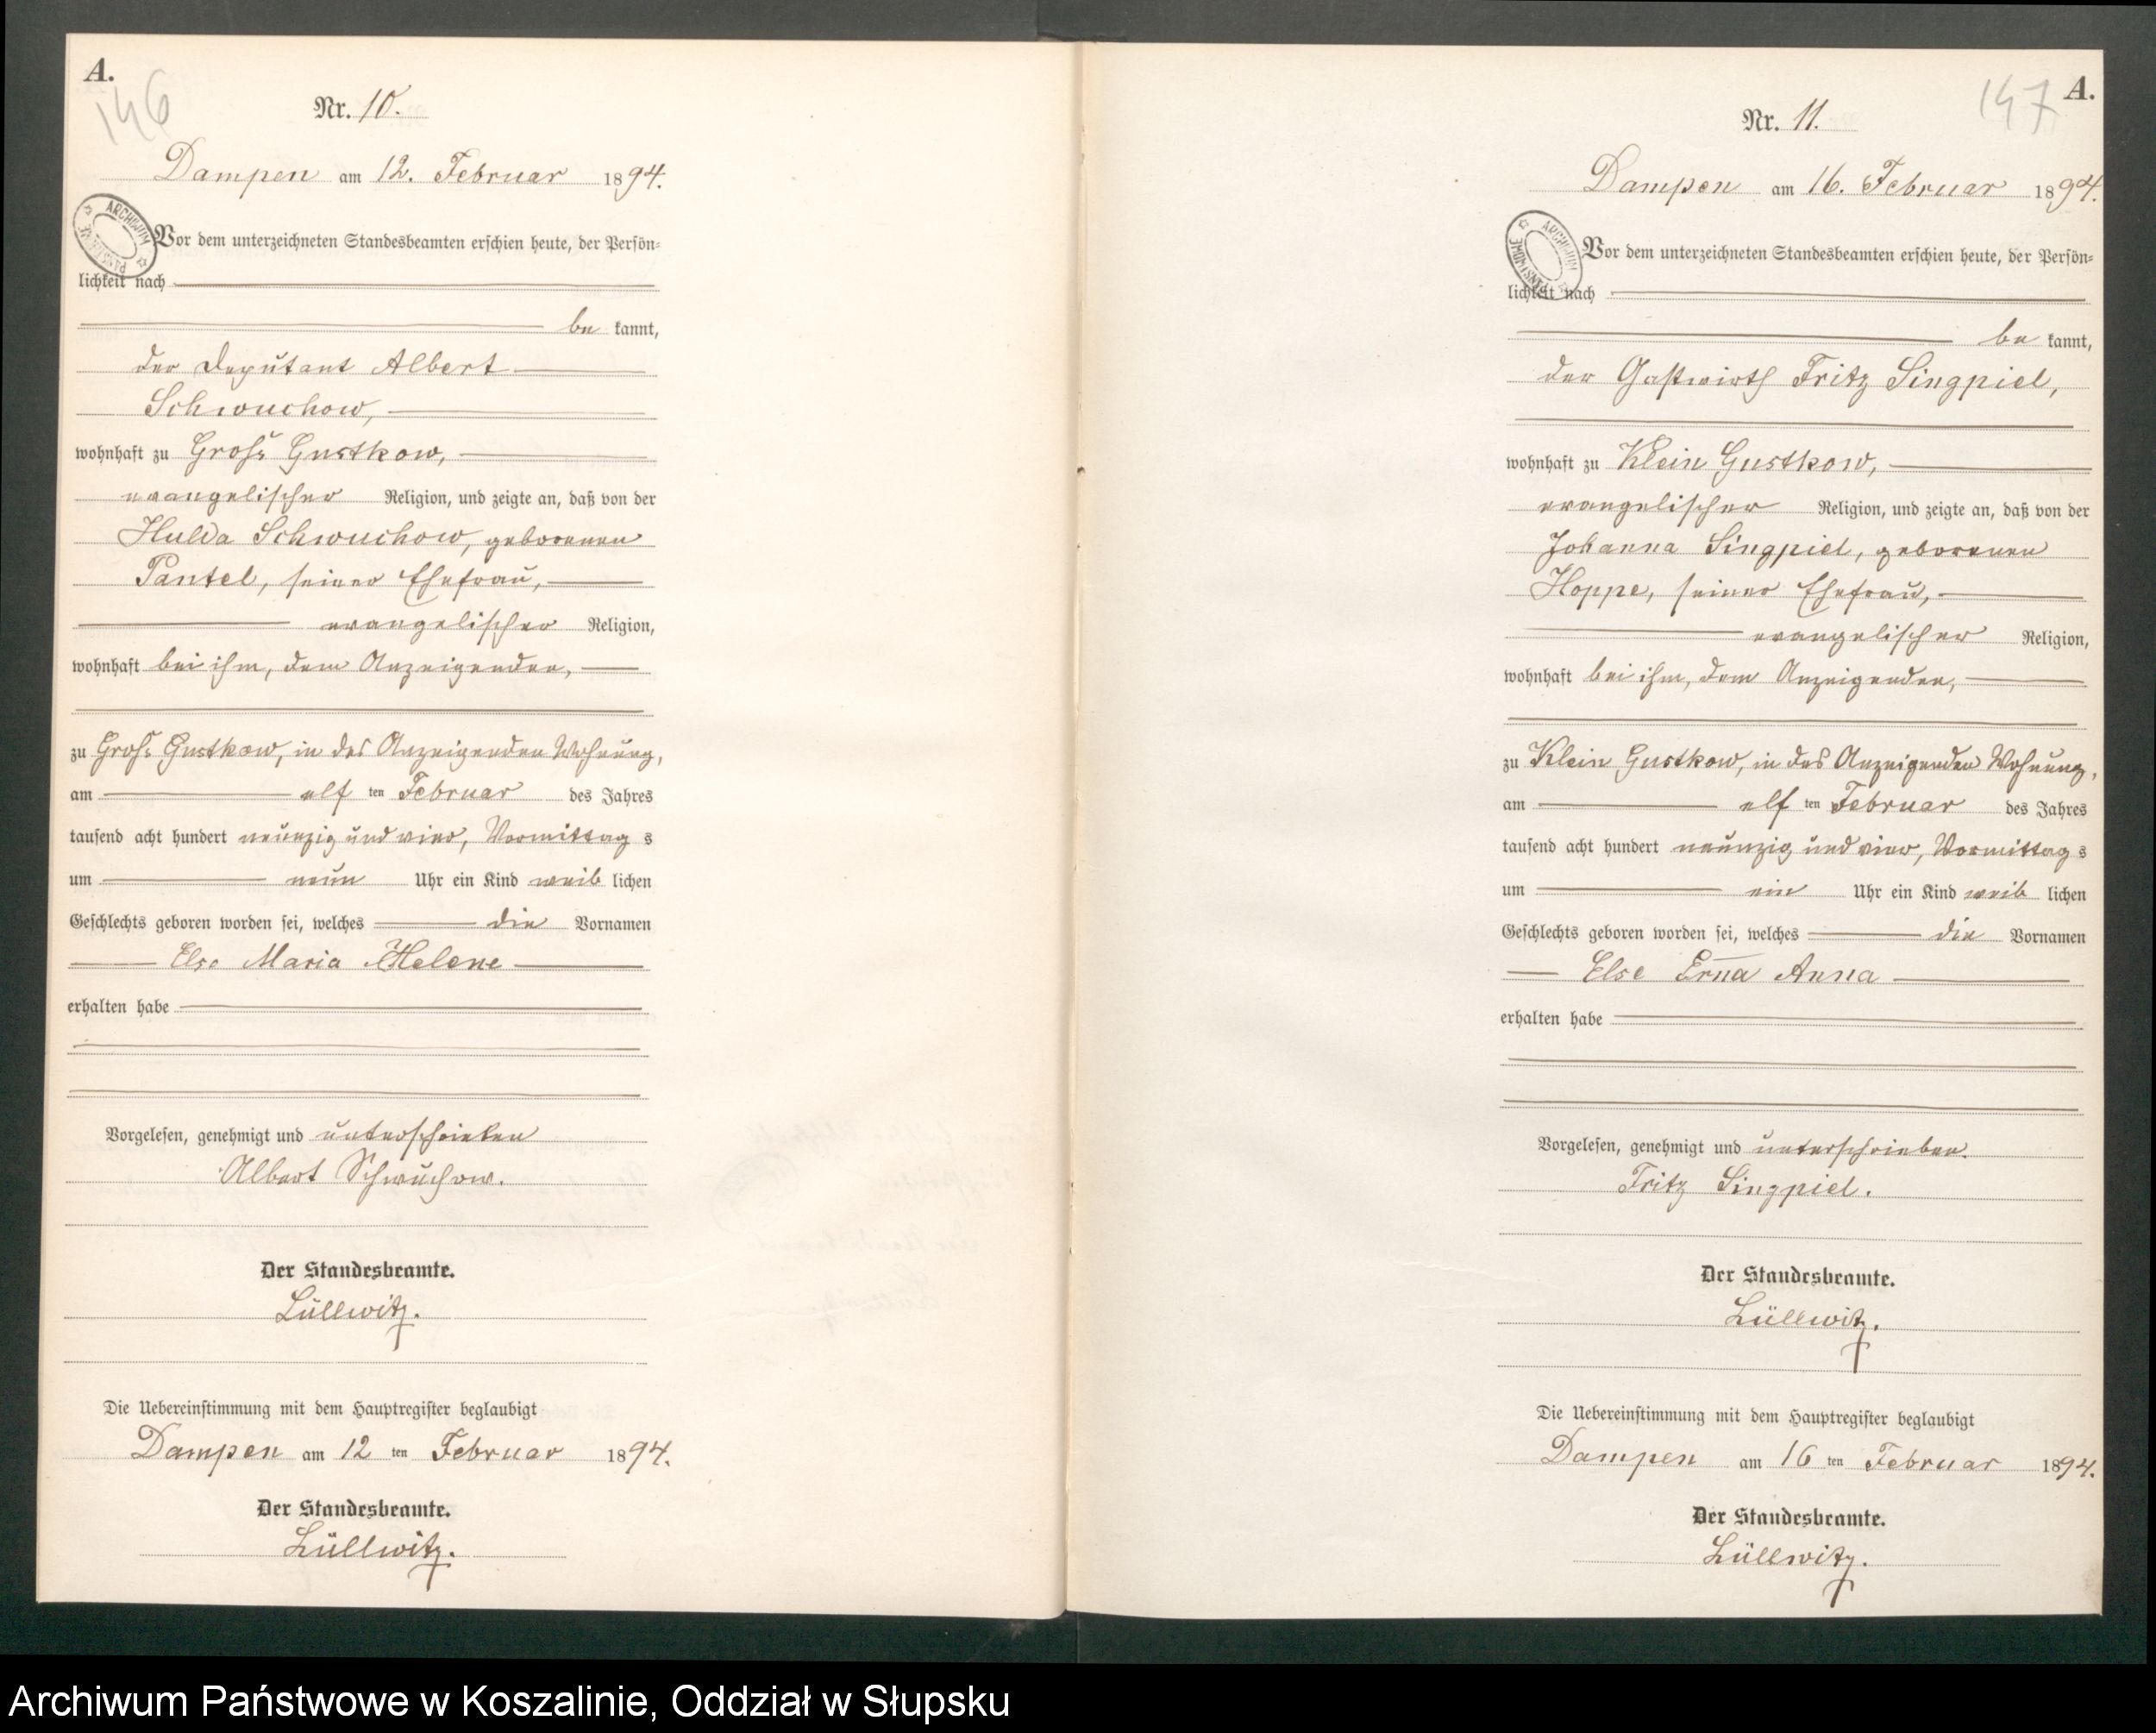 A.
146
Nr. 10.
Dampen am 12. Februar 1894.
ARCHIWUM
Vor dem unterzeichneten Standesbeamten erschien heute, der Persön-
lichkeit nach
be kannt,
der Deputant Albert
Schwuchow,
wohnhaft zu Gross Gustkow,
evangelischer Religion, und zeigte an, daß von der
Hulda Schwuchow, geborenen
Pantel, seiner Ehefrau,
evangelischer Religion,
wohnhaft bei ihm, dem Anzeigenden,
zu Gross Gustkow, in des Anzeigenden Wohnung,
am elf ten Februar des Jahres
tausend acht hundert neunzig und vier, Vormittag s
um neun Uhr ein Kind weib lichen
Geschlechts geboren worden sei, welches die Vornamen
Else Maria Helene
erhalten habe
Vorgelesen, genehmigt und unterschrieben
Albert Schwuchow.
Der Standesbeamte.
Lüllwitz.
Die Uebereinstimmung mit dem Hauptregister beglaubigt
Dampen am 12 ten Februar 1894.
Der Standesbeamte.
Lüllwitz.
147
A.
Nr. 11.
Dampen am 16. Februar 1894.
ARCHIWUM
Vor dem unterzeichneten Standesbeamten erschien heute, der Persön-
lichkeit nach
be kannt,
der Gastwirth Fritz Singpiel,
wohnhaft zu Klein Gustkow,
evangelischer Religion, und zeigte an, daß von der
Johanna Singpiel, geborenen
Hoppe, seiner Ehefrau,
evangelischer Religion,
wohnhaft bei ihm, dem Anzeigenden,
zu Klein Gustkow, in des Anzeigenden Wohnung,
am elf ten Februar des Jahres
tausend acht hundert neunzig und vier, Vormittag s
um ein Uhr ein Kind weib lichen
Geschlechts geboren worden sei, welches die Vornamen
Else Erna Anna
erhalten habe
Vorgelesen, genehmigt und unterschrieben.
Fritz Singpiel.
Der Standesbeamte.
Lüllwitz.
Die Uebereinstimmung mit dem Hauptregister beglaubigt
Dampen am 16 ten Februar 1894.
Der Standesbeamte.
Lüllwitz.
Archiwum Państwowe w Koszalinie, Oddział w Słupsku